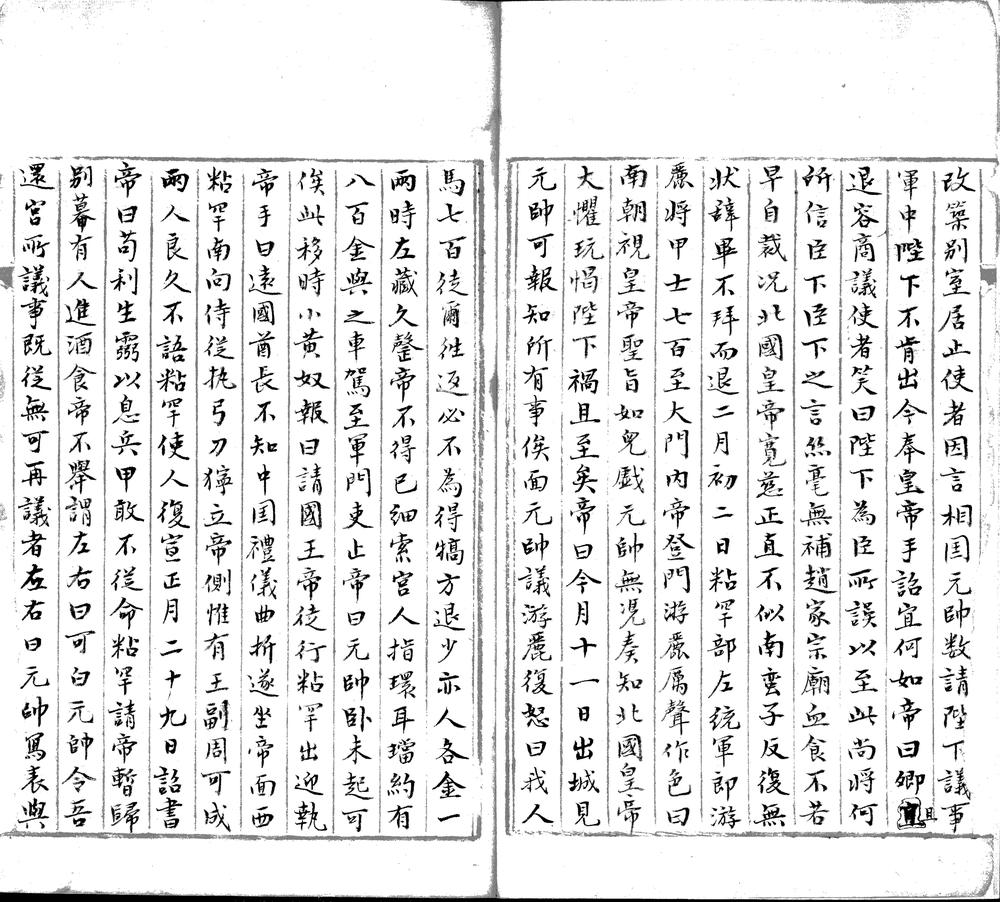 改築别室居止使者因言相囯元帥数請陛下議事
軍中陛下不肯出今奉皇帝手詔宜何如帝曰卿且
退容商議使者笑曰陛下為臣所誤以至此尚將何
所信臣下臣下之言絲毫無補趙家宗廟血食不若
早自裁况北國皇帝寬慈正直不似南蛮子反復無
狀辭畢不拜而退二月初二日粘罕部左統軍郎游
麗將甲士七百至大門内帝登門游麗厲聲作色曰
南朝視皇帝聖旨如兒戲元帥無况奏知北國皇帝
大懼玩愒陛下禍且至矣帝曰今月十一日出城見
元帥可報知所有事俟面元帥議游麗復怒曰我人
馬七百徒爾徃返必不為得犒方退少亦人各金一
兩時左藏久罄帝不得已细索宫人指環耳璫約有
八百金與之車駕至軍門吏止帝曰元帥卧未起可
俟此移時小黄奴報曰請國王帝徒行粘罕出迎執
帝手曰遠國酋長不知中囯禮儀曲折遂坐帝面西
粘罕南向侍從执弓刀獰立帝側惟有王副周可成
兩人良久不語粘罕使人復宣正月二十九日詔書
帝曰苟利生霛以息兵甲敢不從命粘罕請帝暫歸
别幕有人進酒食帝不舉謂左右曰可白元帥令吾
還宫所議事既從無可再議者左右曰元帥寫表與